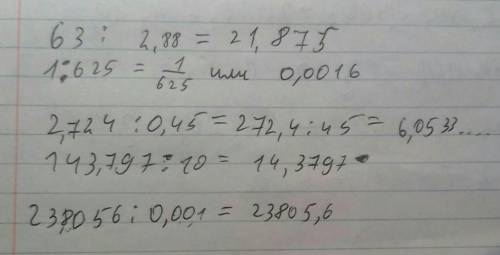 63 : 2,88 = 21,875
1 : 625 = 1/625 или 0,0016
2,724 : 0,45 = 272,4 : 45 = 6,0533.....
143,797 : 10 = 14,3797
23,8056 : 0,001 = 23805,6